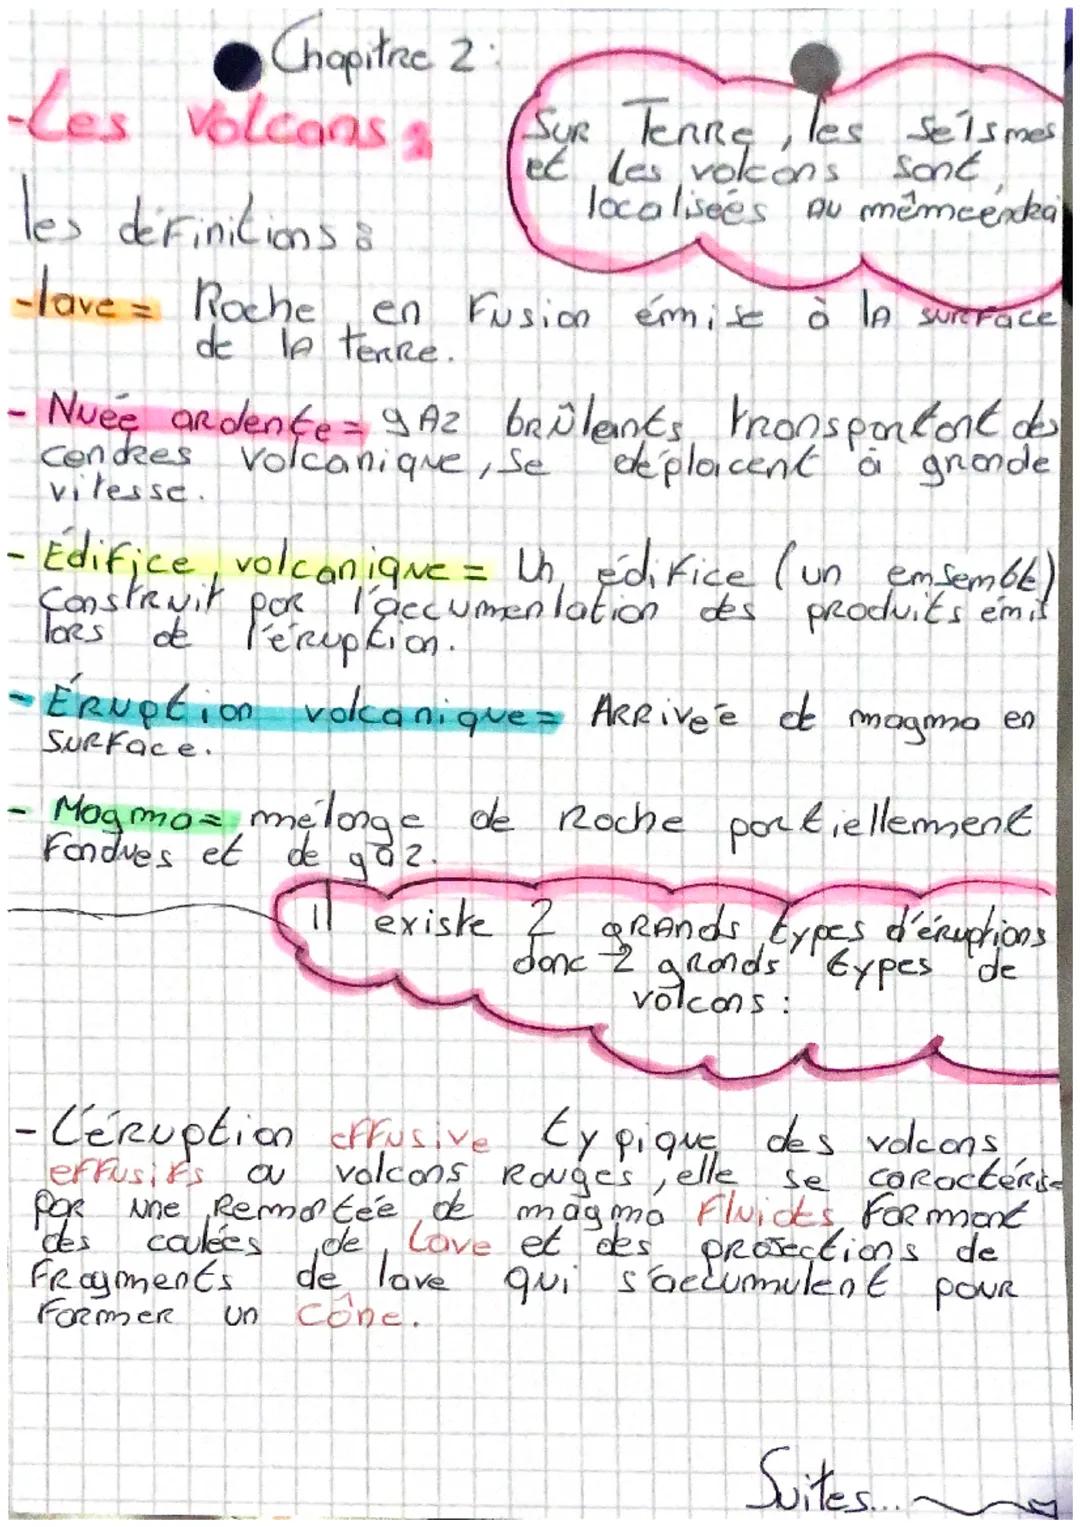 Chapitre 2 :
-Les volcans :
Sur Terre, les Seïsmes
et les volcans sont
localisées au même
les définitions :
-lave = Roche en Fusion émise à la surface
de la terre.
- Nuée ardente = gaz brûlants transportant des
cendres volcanique, se déplacent à grande
vitesse.
- Édifice volcanique = Un édifice (un emsemble)
Construit par l'accumentation des produits émis
lors de l'éruption.
- Éruption volcanique = Arrivée de magma en
surface.
- Magma = mélange de Roche partiellement
Fondues et de gaz.
il existe 2 grands types d'éruptions
donc 2 grands types de
volcans :
- L'éruption effusive typique des volcans
effusifs ou volcans Rouges, elle se caractérise
par une Remontée de magma Fluides Formant
des coulées de Lave et des projections de
Fragments de lave qui s'accumulent pour
Former un Cône.
Suites...